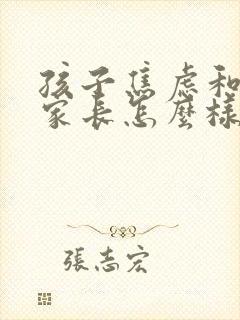 孩子焦虑和
家长怎麼樣
張志宏